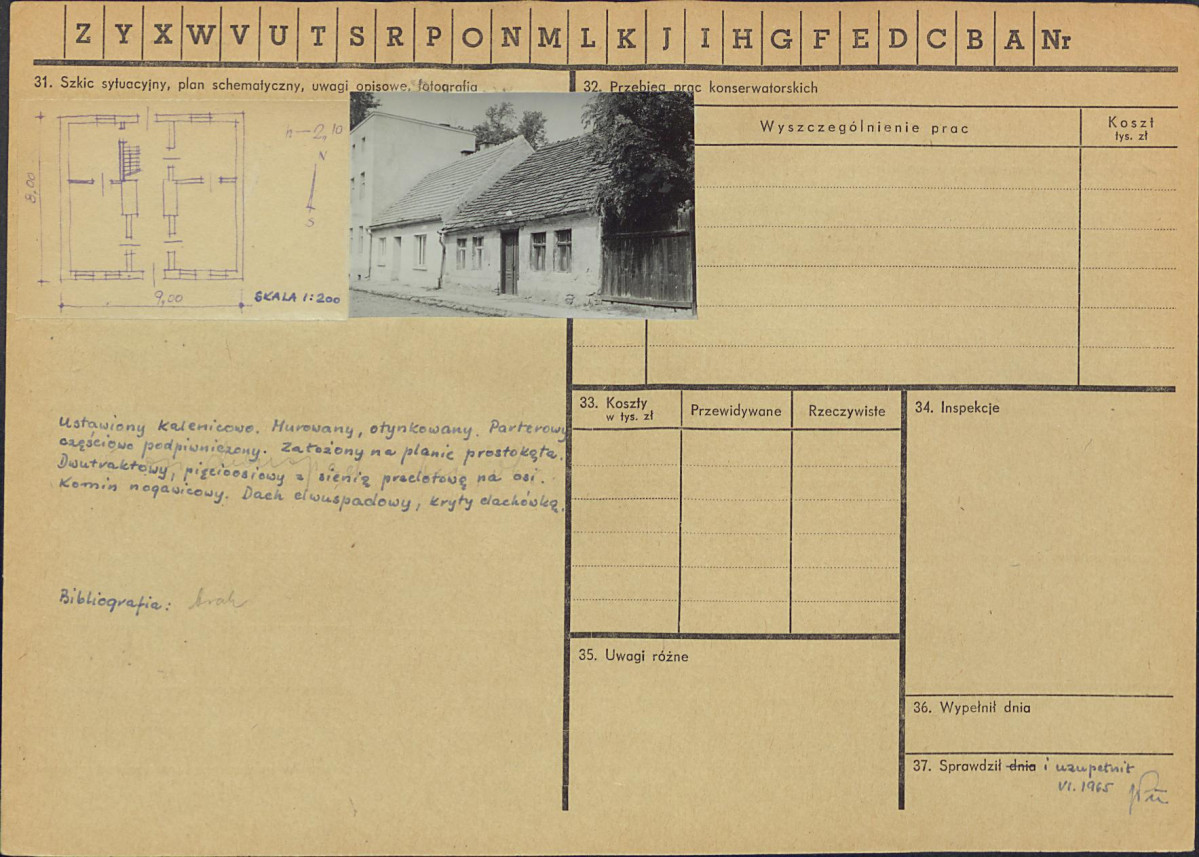 Z Y X W V U T S R P O N M L K J I H G F E D C B A Nr
31. Szkic sytuacyjny, plan schematyczny, uwagi opisowe, fotografia
h – 2,10
N
S
8,00
9,00
SKALA 1:200
Ustawiony kalenicowo. Murowany, otynkowany. Parterowy
częściowo podpiwniczony. Założony na planie prostokąta.
Dwutraktowy, pięcioosiowy z sienią przelotową na osi.
Komin nogawicowy. Dach dwuspadowy, kryty dachówką.
Bibliografia: brak
32. Przebieg prac konserwatorskich
Wyszczególnienie prac
Koszt
tys. zł
33. Koszty
w tys. zł
Przewidywane
Rzeczywiste
34. Inspekcje
35. Uwagi różne
36. Wypełnił dnia
37. Sprawdził dnia i uzupełnił
VI. 1965